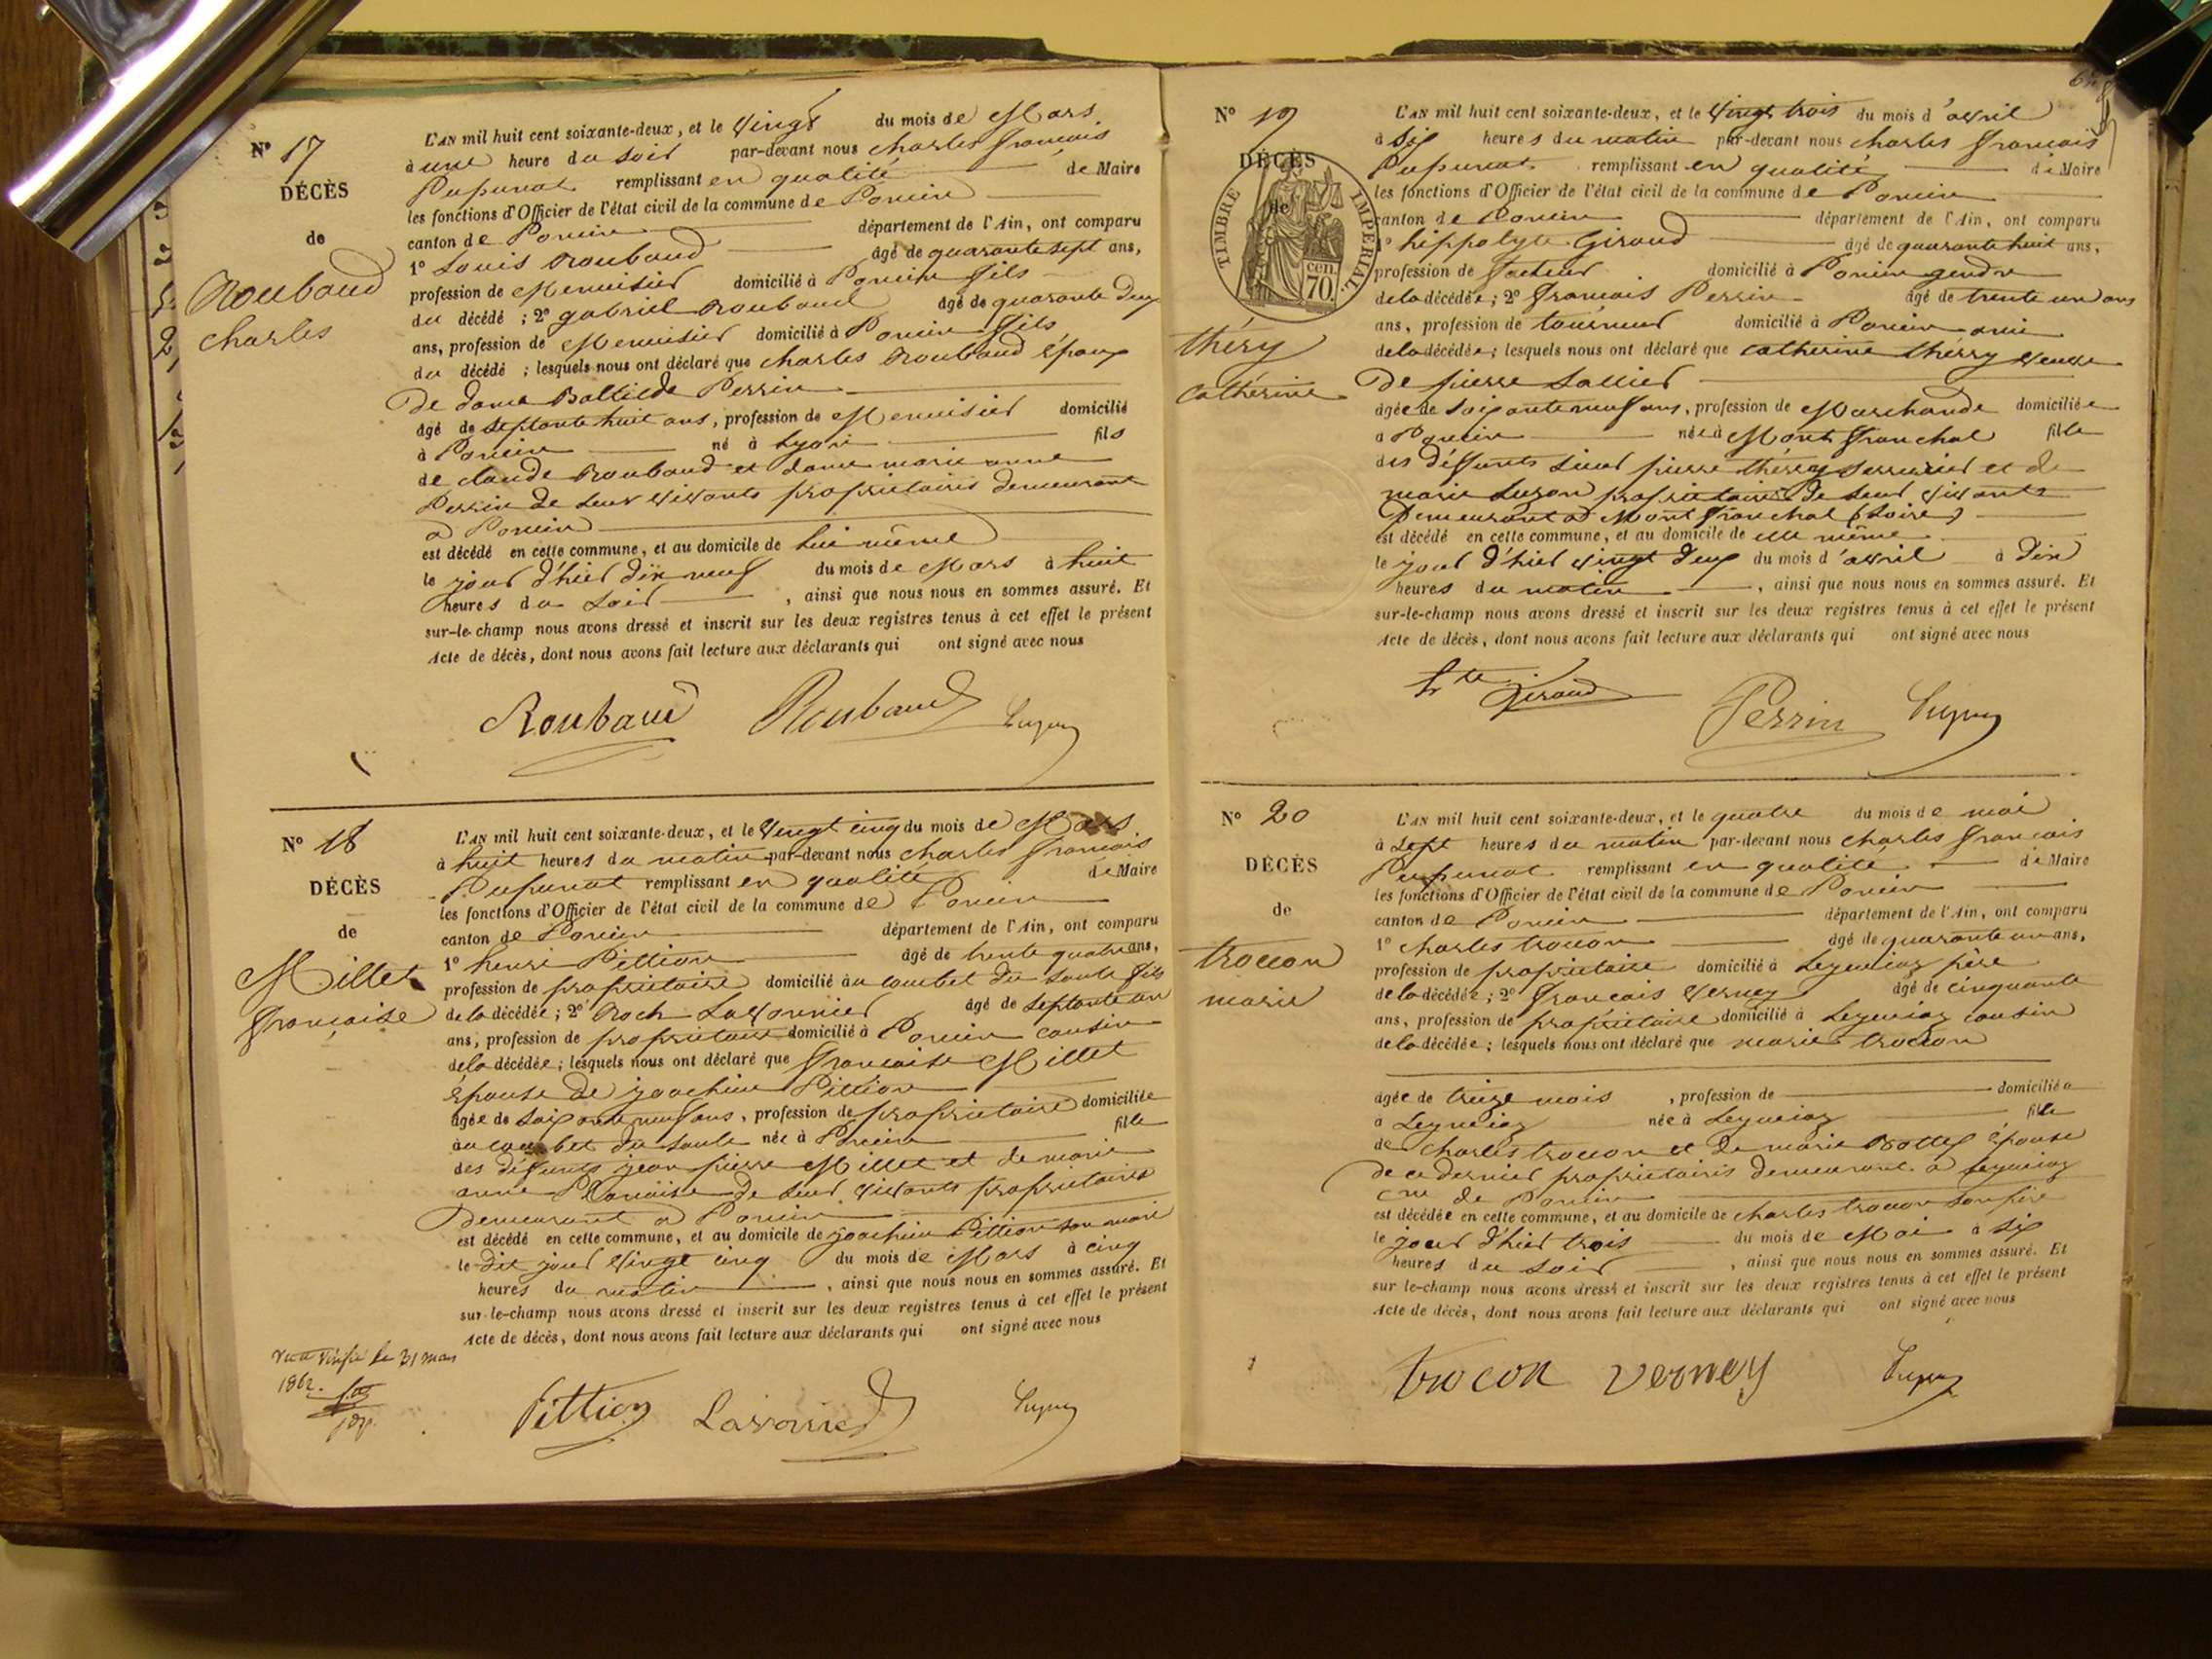 N° 17
DÉCÈS
de
Roubaud
charles
L'AN mil huit cent soixante-deux, et le vingt du mois de Mars
à une heure du soir par-devant nous charles françois
Pupunat remplissant en qualité de Maire
les fonctions d'Officier de l'état civil de la commune de Poncin
canton de Poncin département de l'Ain, ont comparu
1° Louis Roubaud âgé de quarante sept ans,
profession de Menuisier domicilié à Poncin fils
du décédé ; 2° gabriel Roubaud âgé de quarante deux
ans, profession de Menuisier domicilié à Poncin fils
du décédé ; lesquels nous ont déclaré que charles Roubaud Époux
De dame Baltilde Perrin
âgé de septante huit ans, profession de Menuisier domicilié
à Poncin né à Lyon fils
de claude Roubaud et dame marie anne
Perrin de leur vivants propriétaires demeurant
a Poncin
est décédé en cette commune, et au domicile de lui même
le jour d'hier dix neuf du mois de Mars à huit
heures du soir , ainsi que nous nous en sommes assuré. Et
sur-le-champ nous avons dressé et inscrit sur les deux registres tenus à cet effet le présent
Acte de décès, dont nous avons fait lecture aux déclarants qui ont signé avec nous
Roubaud Roubaud
N° 18
DÉCÈS
de
Millet
françoise
L'AN mil huit cent soixante-deux, et le vingt cinq du mois de Mars
à huit heures du matin par-devant nous charles françois
Pupunat remplissant en qualité de Maire
les fonctions d'Officier de l'état civil de la commune de Poncin
canton de Poncin département de l'Ain, ont comparu
1° henri Pittion âgé de trente quatre ans,
profession de propriétaire domicilié au combet du saule fils
de la décédée ; 2° Roch Lavorrier âgé de septante un
ans, profession de propriétaire domicilié à Poncin cousin
de la décédée ; lesquels nous ont déclaré que françoise Millet
Épouse de joachim Pittion
âgée de soixante neuf ans, profession de propriétaire domiciliée
au combet du saule née à Poncin fille
des défunts jean pierre Millet et de marie
anne de leur vivants propriétaires
demeurant a Poncin
est décédé en cette commune, et au domicile de joachim Pittion son mari
le dit jour vingt cinq du mois de Mars à cinq
heures du matin , ainsi que nous nous en sommes assuré. Et
sur-le-champ nous avons dressé et inscrit sur les deux registres tenus à cet effet le présent
Acte de décès, dont nous avons fait lecture aux déclarants qui ont signé avec nous
vérifié le 31 mars
1862.
Pittion Lavorrier
N° 19
DÉCÈS
de
TIMBRE IMPÉRIAL
70 cen.
théry
catherine
L'AN mil huit cent soixante-deux, et le vingt trois du mois d'avril
à six heures du matin par-devant nous charles françois
Pupunat remplissant en qualité de Maire
les fonctions d'Officier de l'état civil de la commune de Poncin
canton de Poncin département de l'Ain, ont comparu
1° hippolyte Giraud âgé de quarante huit ans,
profession de facteur domicilié à Poncin gendre
de la décédée ; 2° françois Perrin âgé de trente un ans
ans, profession de tourneur domicilié à Poncin ami
de la décédée ; lesquels nous ont déclaré que catherine thérry veuve
De pierre Lallier
âgée de soixante neuf ans, profession de Marchande domiciliée
à Poncin née à Mont franchal fille
des défunts sieur pierre thérry serrurier et de
marie Luzon propriétaires de leur vivants
Demeurant a Mont franchal (Loire)
est décédé en cette commune, et au domicile de elle même
le jour d'hier vingt deux du mois d'avril à dix
heures du matin , ainsi que nous nous en sommes assuré. Et
sur-le-champ nous avons dressé et inscrit sur les deux registres tenus à cet effet le présent
Acte de décès, dont nous avons fait lecture aux déclarants qui ont signé avec nous
hte Giraud Perrin
N° 20
DÉCÈS
de
trocon
marie
L'AN mil huit cent soixante-deux, et le quatre du mois de mai
à sept heures du matin par-devant nous charles françois
Pupunat remplissant en qualité de Maire
les fonctions d'Officier de l'état civil de la commune de Poncin
canton de Poncin département de l'Ain, ont comparu
1° charles trocon âgé de quarante un ans,
profession de propriétaire domicilié à Leymiaz père
de la décédée ; 2° françois Verney âgé de cinquante
ans, profession de propriétaire domicilié à Leymiaz cousin
de la décédée ; lesquels nous ont déclaré que marie trocon
âgée de treize mois , profession de domiciliée
à Leymiaz née à Leymiaz fille
de charles trocon et de marie Épouse
de ce dernier propriétaires demeurant a Leymiaz
cne de Poncin
est décédée en cette commune, et au domicile de charles trocon son père
le jour d'hier trois du mois de Mai à six
heures du soir , ainsi que nous nous en sommes assuré. Et
sur le-champ nous avons dressé et inscrit sur les deux registres tenus à cet effet le présent
Acte de décès, dont nous avons fait lecture aux déclarants qui ont signé avec nous
trocon verney